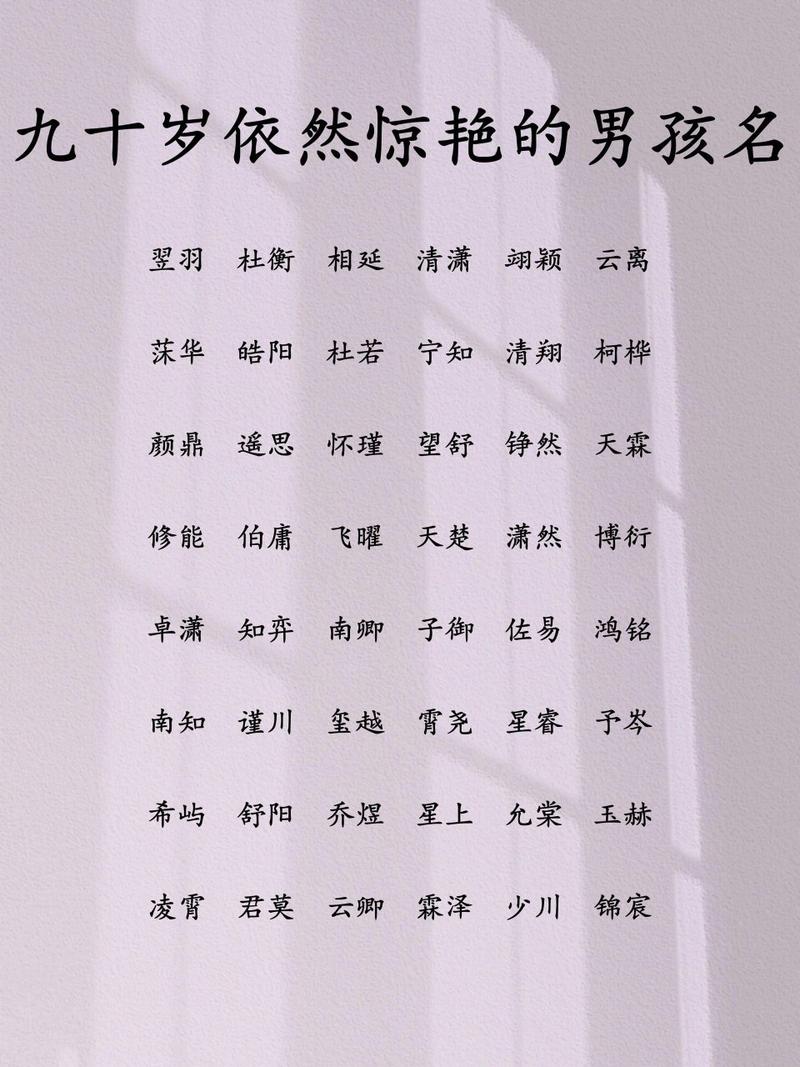 九十岁依然惊艳的男孩名
翌羽 杜衡 相延 清潇 翊颖 云离
莯华 皓阳 杜若 宁知 清翔 柯桦
颜鼎 遥思 怀瑾 望舒 铮然 天霖
修能 伯庸 飞曜 天楚 潇然 博衍
卓潇 知弈 南卿 子御 佐易 鸿铭
南知 谨川 玺越 霄尧 星睿 予岑
希屿 舒阳 乔煜 星上 允棠 玉赫
凌霄 君莫 云卿 霖泽 少川 锦宸